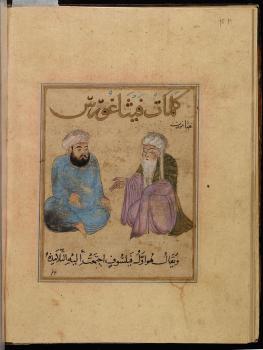 كلمات فيثاغورس
ويقال هو اول فيلسوف اجتمعت اليه التلاميذ